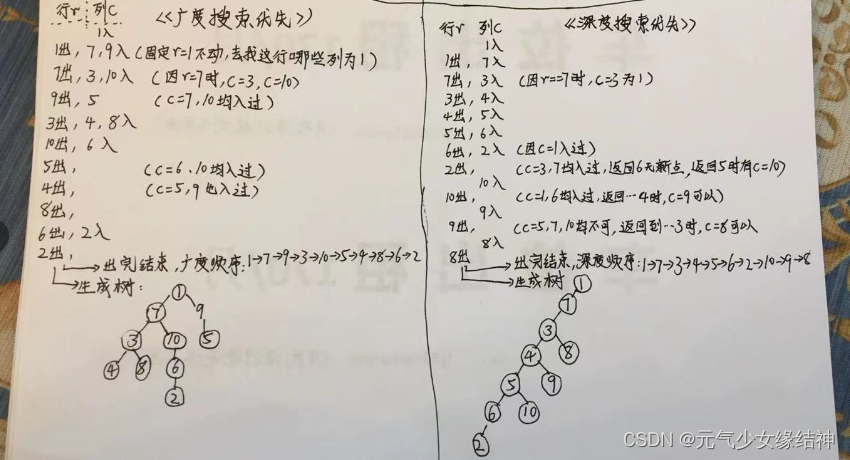 行r 列C 《广度搜索优先》
1入
1出, 7, 9入 (固定r=1不动,去找这行哪些列为1)
7出, 3, 10入 (因r=7时, C=3, C=10)
9出, 5 (C=7,10均入过)
3出, 4, 8入
10出, 6入
5出, (C=6、10均入过)
4出, (C=5,9也入过)
8出,
6出, 2入
2出,
出完结束,广度顺序:1→7→9→3→10→5→4→8→6→2
生成树:
1
7 9
3 10 5
4 8 6
2
行r 列C 《深度搜索优先》
1入
1出, 7入
7出, 3入 (因r==7时, C=3为1)
3出, 4入
4出, 5入
5出, 6入
6出, 2入 (因C=1入过)
2出, (C=3,7均入过,返回6无新点,返回5时有C=10)
10入
10出, (C=1,6均入过,返回…4时,C=9可以)
9入
9出, (C=5,7,10均不可,返回到…3时,C=8可以
8入
8出
出完结束,深度顺序:1→7→3→4→5→6→2→10→9→8
生成树
1
7
3
4 8
5 9
6 10
2
CSDN @元气少女缘结神